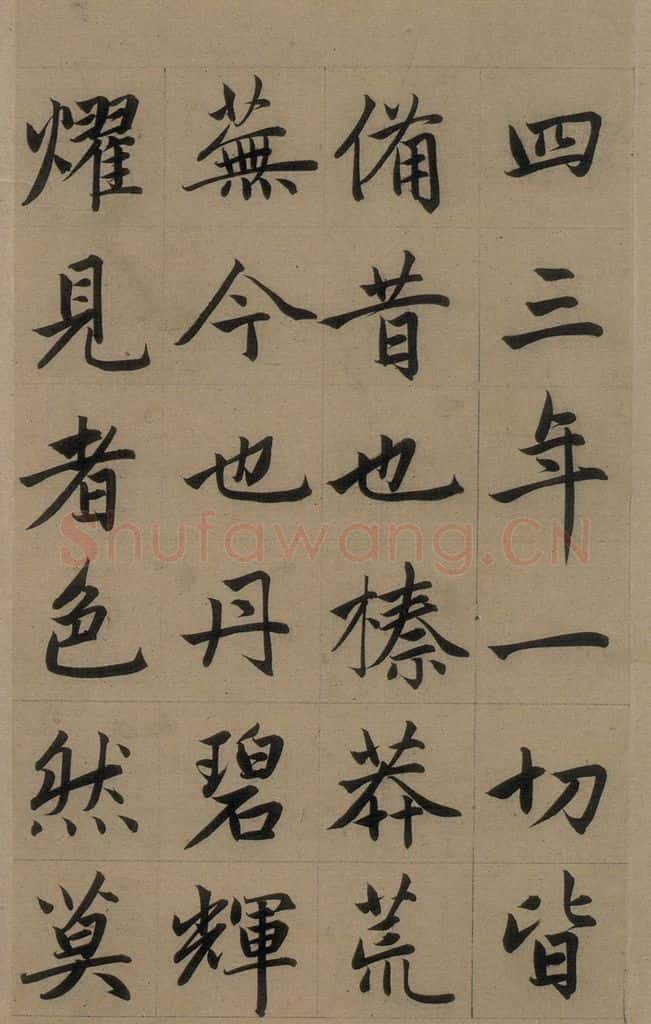 四三年一切皆
備昔也榛莽荒
蕪今也丹碧輝
燿見者色然莫
Shufawang.CN